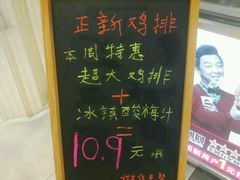 正新鸡排
本周特惠
超大鸡排
+
冰镇酸梅汁
=
10.9元